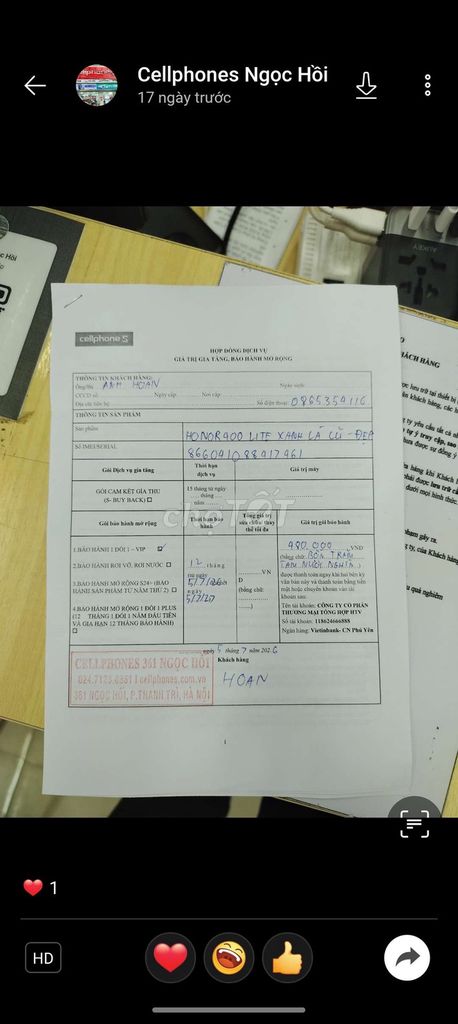 Cellphones Ngọc Hồi
17 ngày trước
AUKEY
cellphoneS
HỢP ĐỒNG DỊCH VỤ
GIÁ TRỊ GIA TĂNG, BẢO HÀNH MỞ RỘNG
THÔNG TIN KHÁCH HÀNG:
Ông/Bà: ANH HOAN Ngày sinh:
CCCD số: Ngày cấp: Nơi cấp:
Địa chỉ liên hệ Số điện thoại: 0865359116
THÔNG TIN SẢN PHẨM
Sản phẩm HONOR 400 LITE XANH LÁ CŨ - ĐẸP
Số IMEI/SERIAL 866041088917461
Gói Dịch vụ gia tăng Thời hạn dịch vụ Giá trị máy
GÓI CAM KẾT GIÁ THU (S- BUY BACK) 15 tháng từ ngày
... tháng ...
năm ......
Gói bảo hành mở rộng Thời hạn bảo hành Tổng giá trị sửa chữa/ thay thế tối đa Giá trị gói bảo hành
1.BẢO HÀNH 1 ĐỔI 1 – VIP
2.BẢO HÀNH RƠI VỠ, RƠI NƯỚC
3.BẢO HÀNH MỞ RỘNG S24+ (BAO HÀNH SẢN PHẨM TỪ NĂM THỨ 2)
4.BAO HÀNH MỞ RỘNG 1 ĐỔI 1 PLUS (12 THÁNG 1 ĐỔI 1 NĂM ĐẦU TIÊN VÀ GIA HẠN 12 THÁNG BẢO HÀNH)
12 tháng
từ ngày
5/7/26
5/7/27
VN
D
(bằng chữ:
480.000 VND
(bằng chữ: BỐN TRĂM
TÁM MƯƠI NGHÌN)
được thanh toán ngay khi hai bên ký
văn bản này và thanh toán bằng tiền
mặt hoặc chuyển khoản vào tài
khoản sau:
Tên tài khoản: CÔNG TY CỔ PHẦN
THƯƠNG MẠI TỔNG HỢP HTV
Số tài khoản: 118624666888
Ngân hàng: Vietinbank- CN Phú Yên
ngày 5 tháng 7 năm 2026
Khách hàng
HOAN
CELLPHONES 361 NGỌC HỒI
cellphones.com.vn
361 NGỌC HỒI, P.THANH TRÌ, HÀ NỘI
1
chợTỐT
1
HD